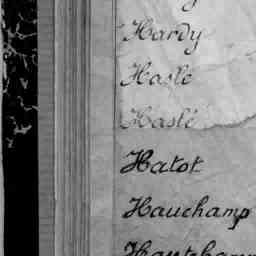 Hardy
Hasle
Haslé
Hatot
Hauchamp